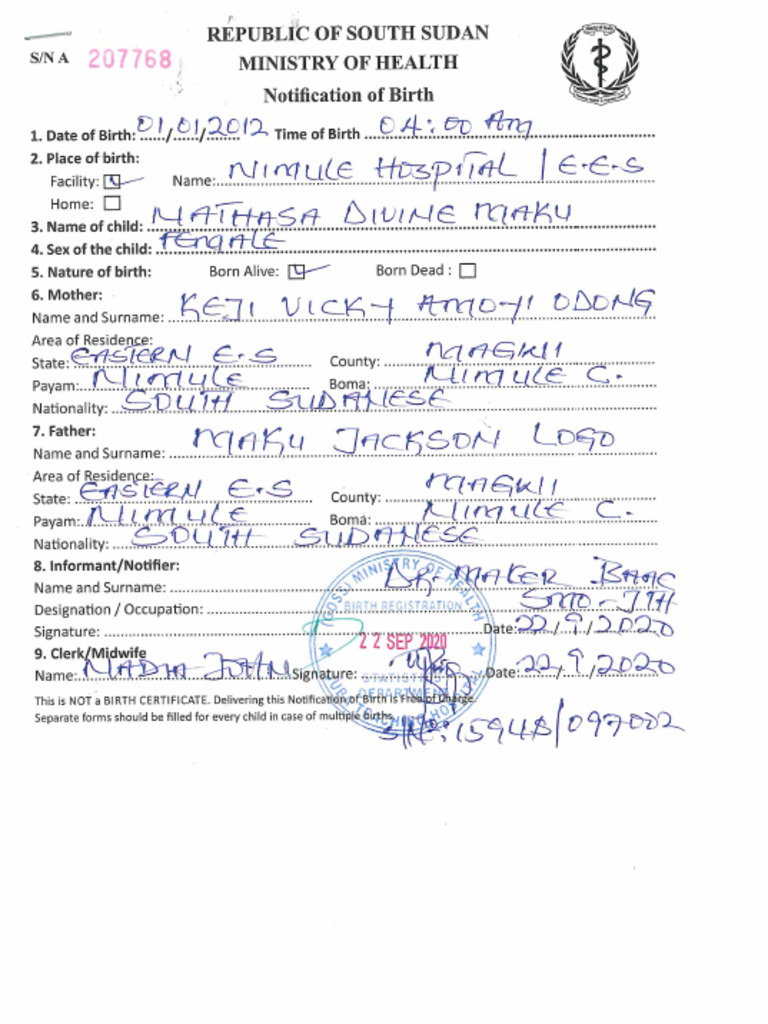 REPUBLIC OF SOUTH SUDAN
S/N A 207768
MINISTRY OF HEALTH
Notification of Birth
1. Date of Birth: 01/01/2012 Time of Birth 04:00 Am
2. Place of birth:
Facility: Name: NIMULE HOSPITAL / E.E.S
Home:
3. Name of child: NATHASA DIVINE MAKU
4. Sex of the child: FEMALE
5. Nature of birth: Born Alive: Born Dead :
6. Mother:
Name and Surname: KEJI VICKY AMOYI ODONG
Area of Residence:
State: EASTERN E.S County: MAGWII
Payam: NIMULE Boma: NIMULE C.
Nationality: SOUTH SUDANESE
7. Father:
Name and Surname: MAKU JACKSON LOGO
Area of Residence:
State: EASTERN E.S County: MAGWII
Payam: NIMULE Boma: NIMULE C.
Nationality: SOUTH SUDANESE
8. Informant/Notifier:
Name and Surname: DR. MAKER BAAC
Designation / Occupation: SMO - JTH
Signature: Date: 22/9/2020
9. Clerk/Midwife
Name: Signature: Date: 22/9/2020
(GOSS) MINISTRY OF HEALTH
BIRTH REGISTRATION
22 SEP 2020
STATISTICS
DEPARTMENT
JUBA TEACHING HOSPITAL
This is NOT a BIRTH CERTIFICATE. Delivering this Notification of Birth is Free of Charge.
Separate forms should be filled for every child in case of multiple births.